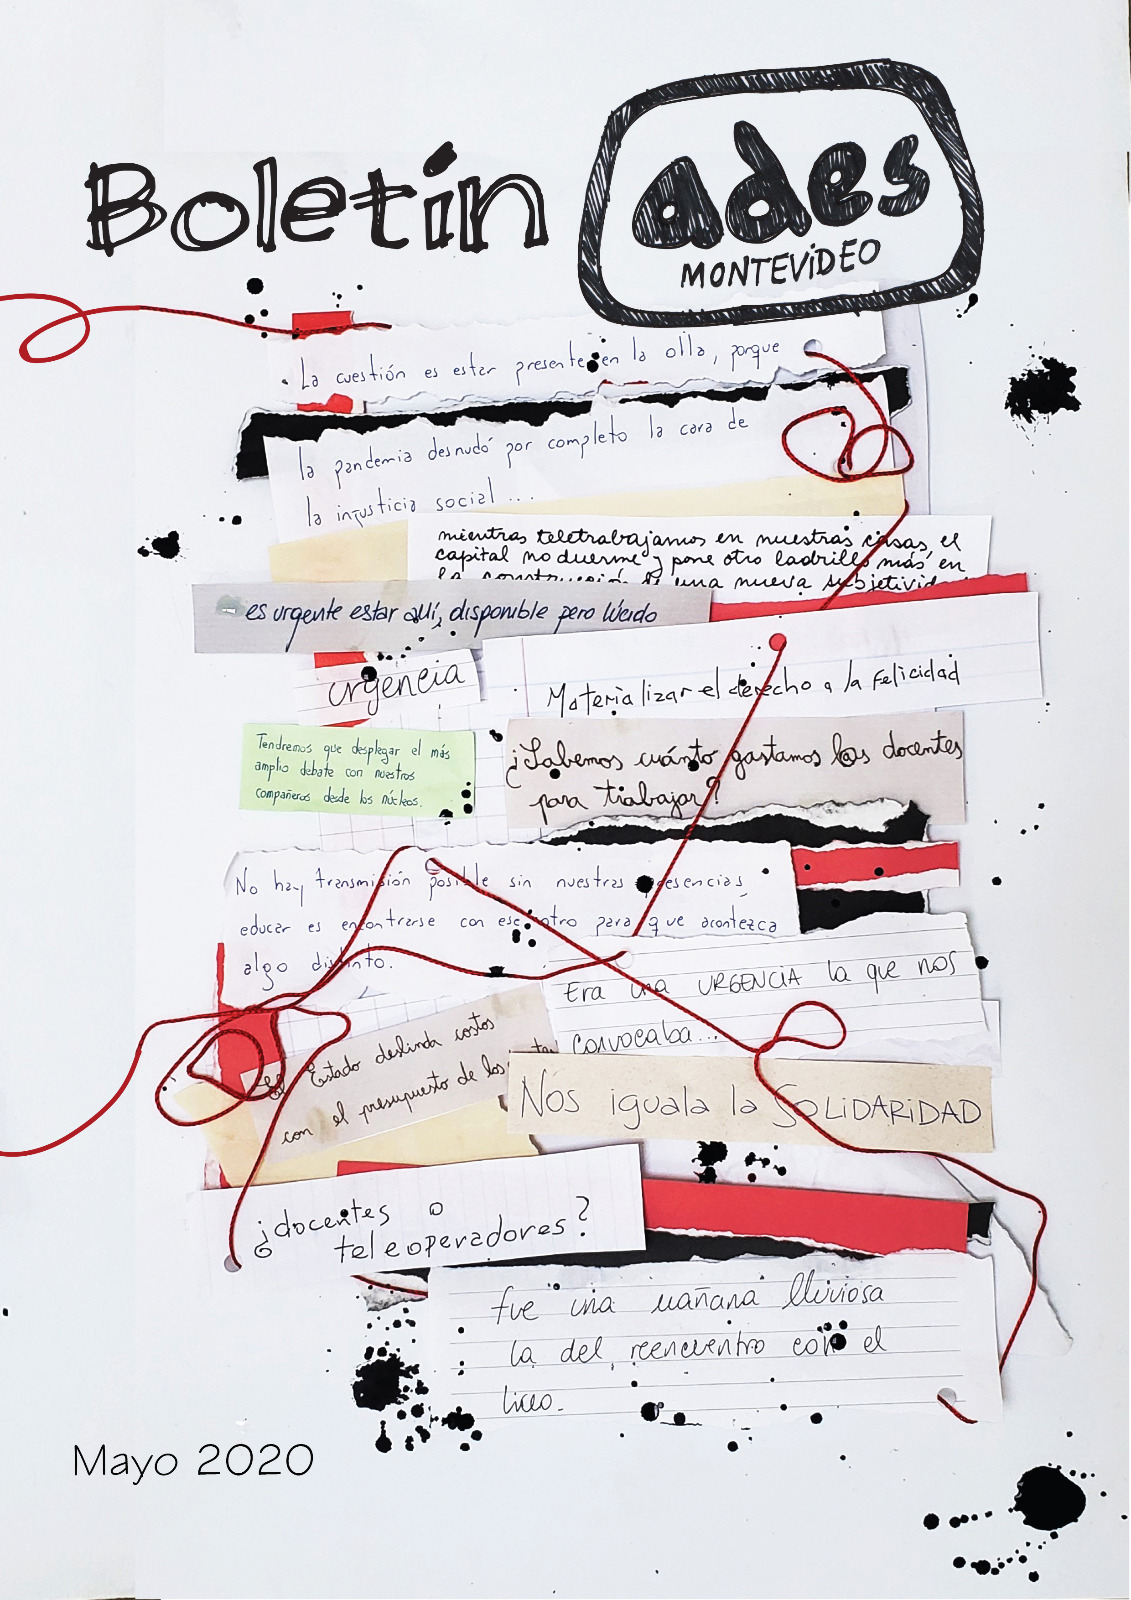 Boletín
ades
MONTEVIDEO
La cuestión es estar presente en la olla, porque
la pandemia desnudó por completo la cara de
la injusticia social ...
mientras teletrabajamos en nuestras casas, el
capital no duerme y pone otro ladrillo más en
la construcción de una nueva
es urgente estar allí, disponible pero lúcido
urgencia
Materializar el derecho a la felicidad
Tendremos que desplegar el más
amplio debate con nuestros
compañeros desde los núcleos.
¿Sabemos cuánto gastamos los docentes
para trabajar?
No hay transmisión posible sin nuestras presencias,
educar es encontrarse con ese otro para que acontezca
algo distinto.
Era una URGENCIA la que nos
convocaba...
El Estado deslinda costos
con el presupuesto de los
Nos iguala la SOLIDARIDAD
¿docentes o
teleoperadores?
fue una mañana lluviosa
la del reencuentro con el
liceo.
Mayo 2020